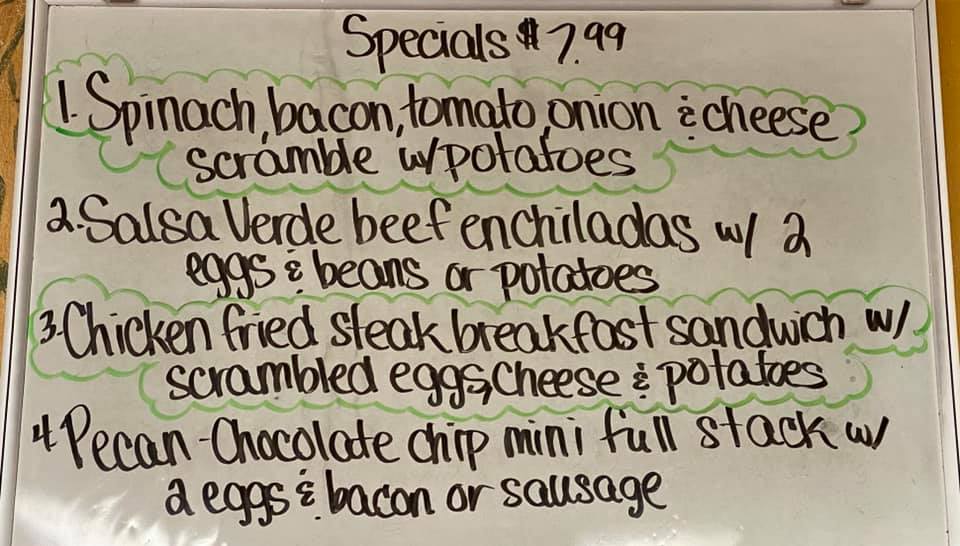 Specials $7.99
1. Spinach, bacon, tomato, onion & cheese
scramble w/potatoes
2. Salsa Verde beef enchiladas w/ 2
eggs & beans or potatoes
3. Chicken fried steak breakfast sandwich w/
scrambled eggs, cheese & potatoes
4 Pecan-Chocolate chip mini full stack w/
2 eggs & bacon or sausage